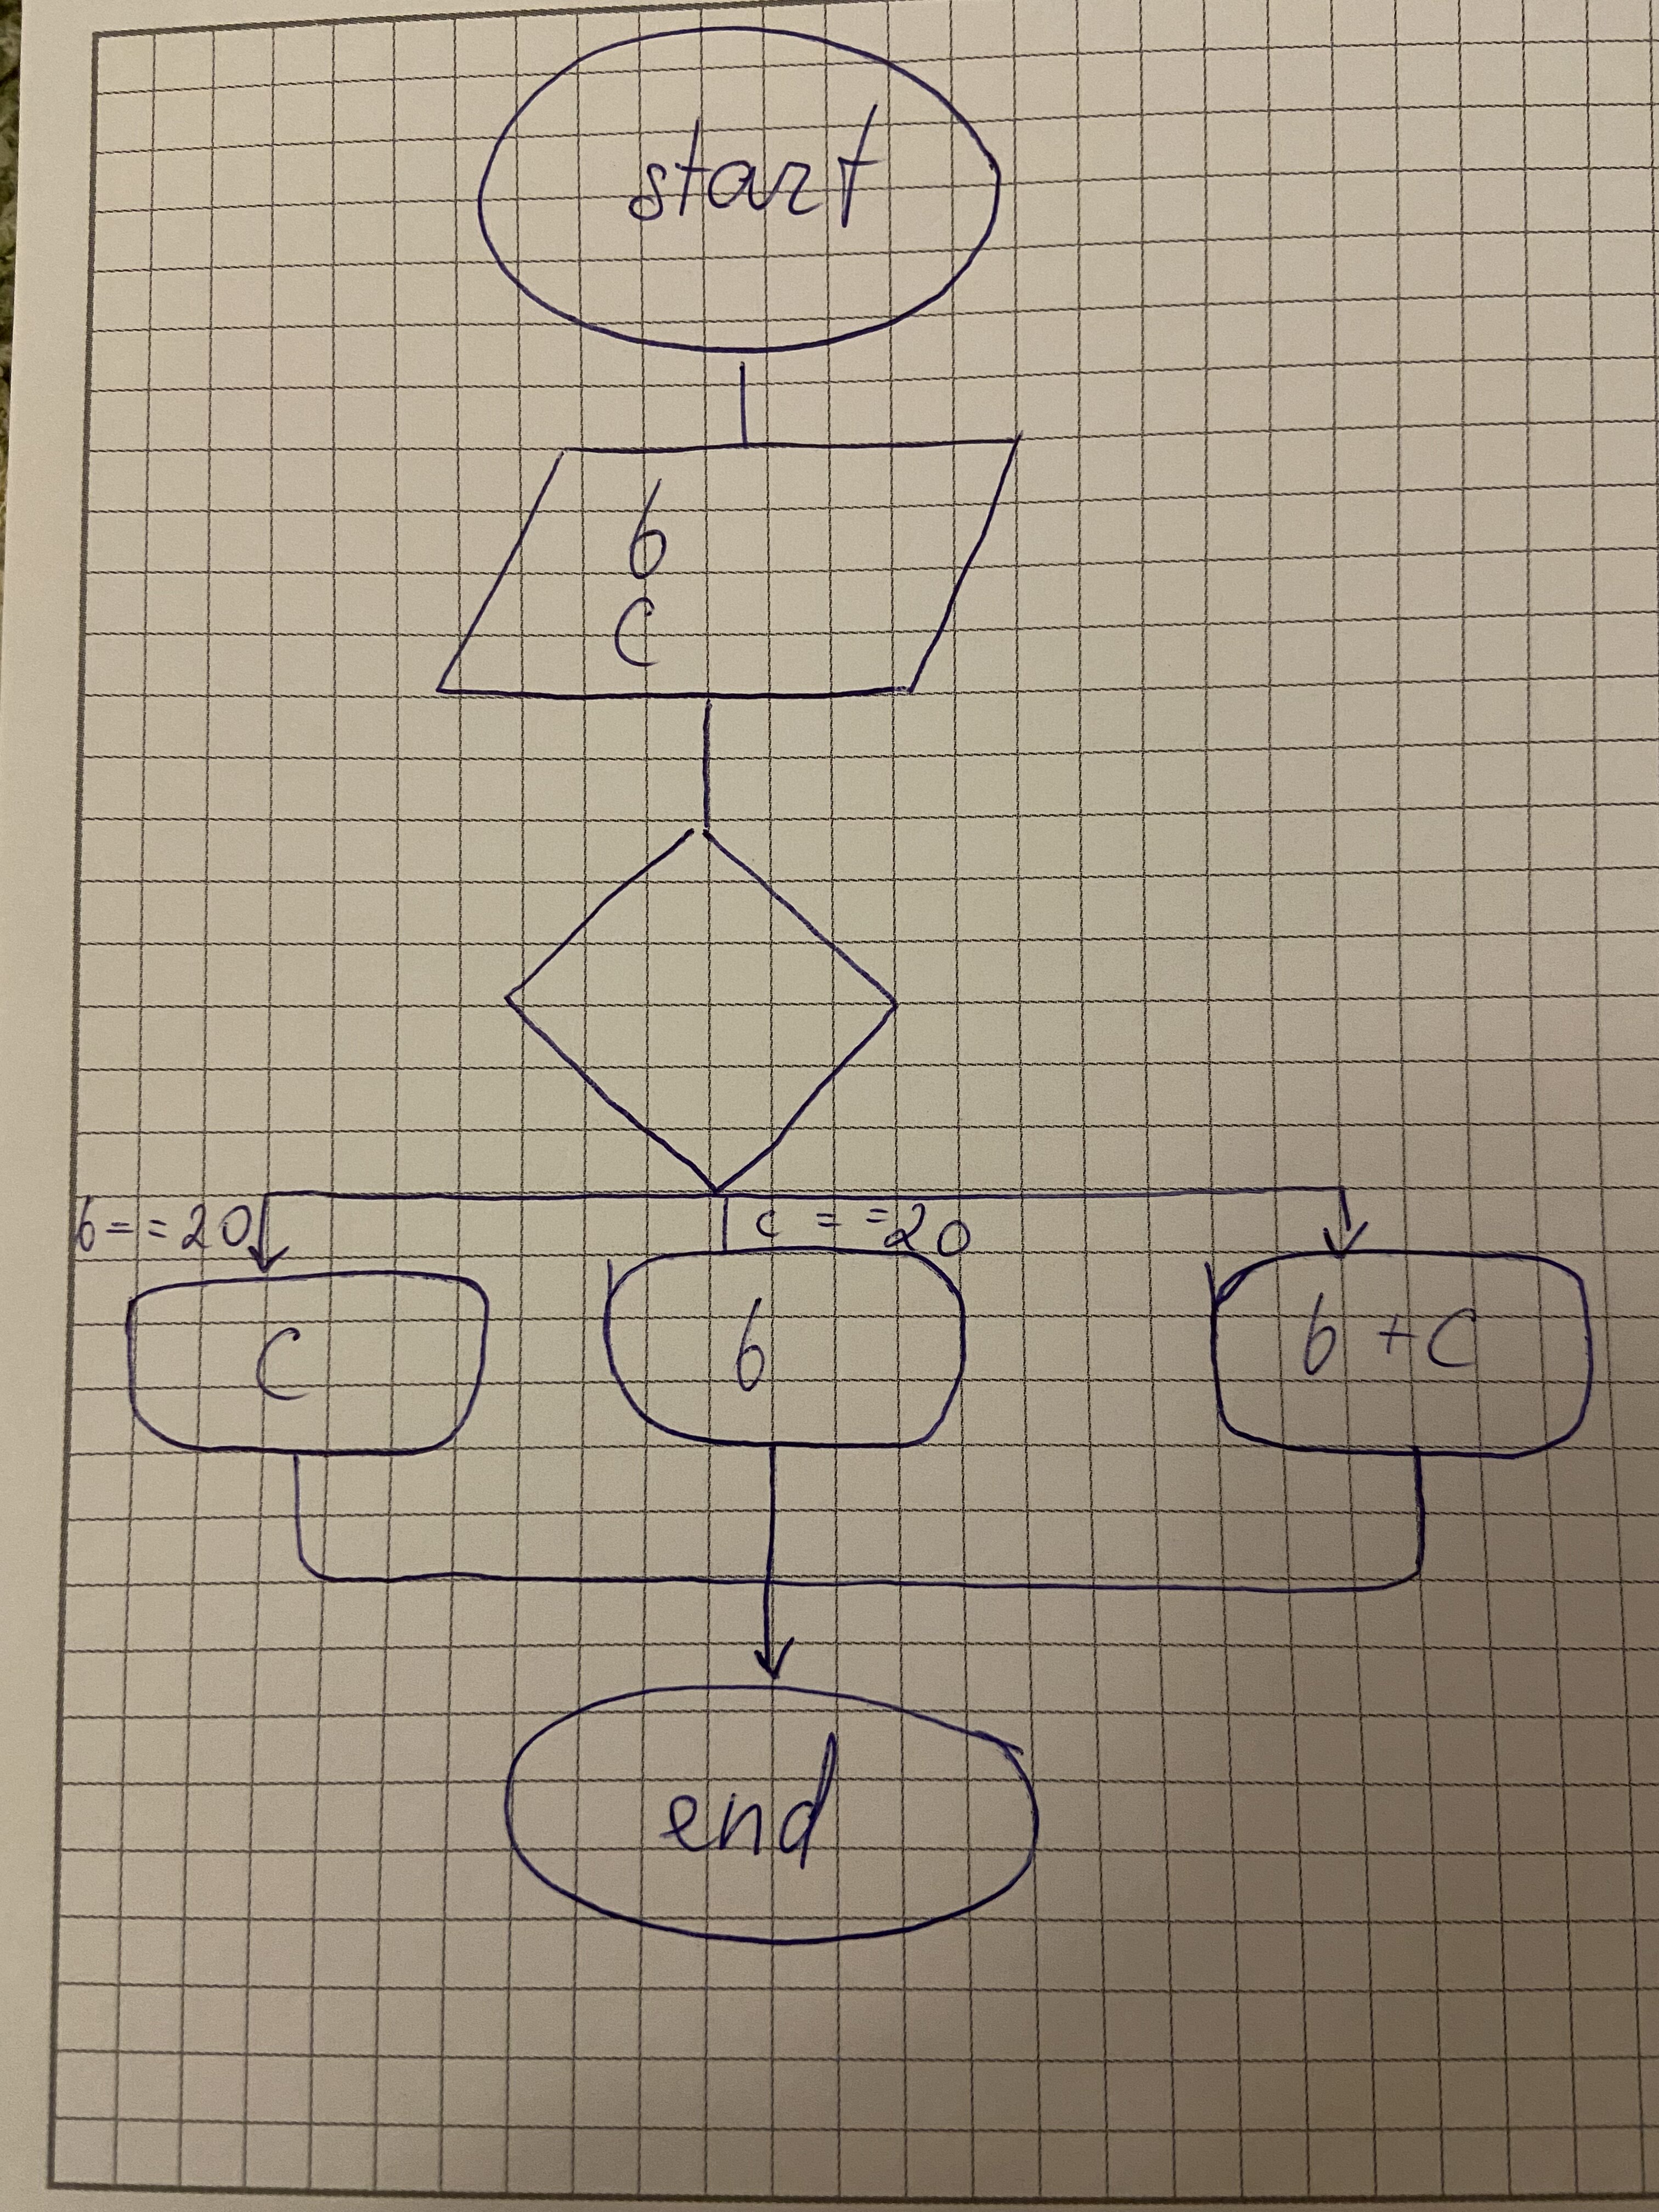 start
b
c
b==20
c==20
c
b
b+c
end